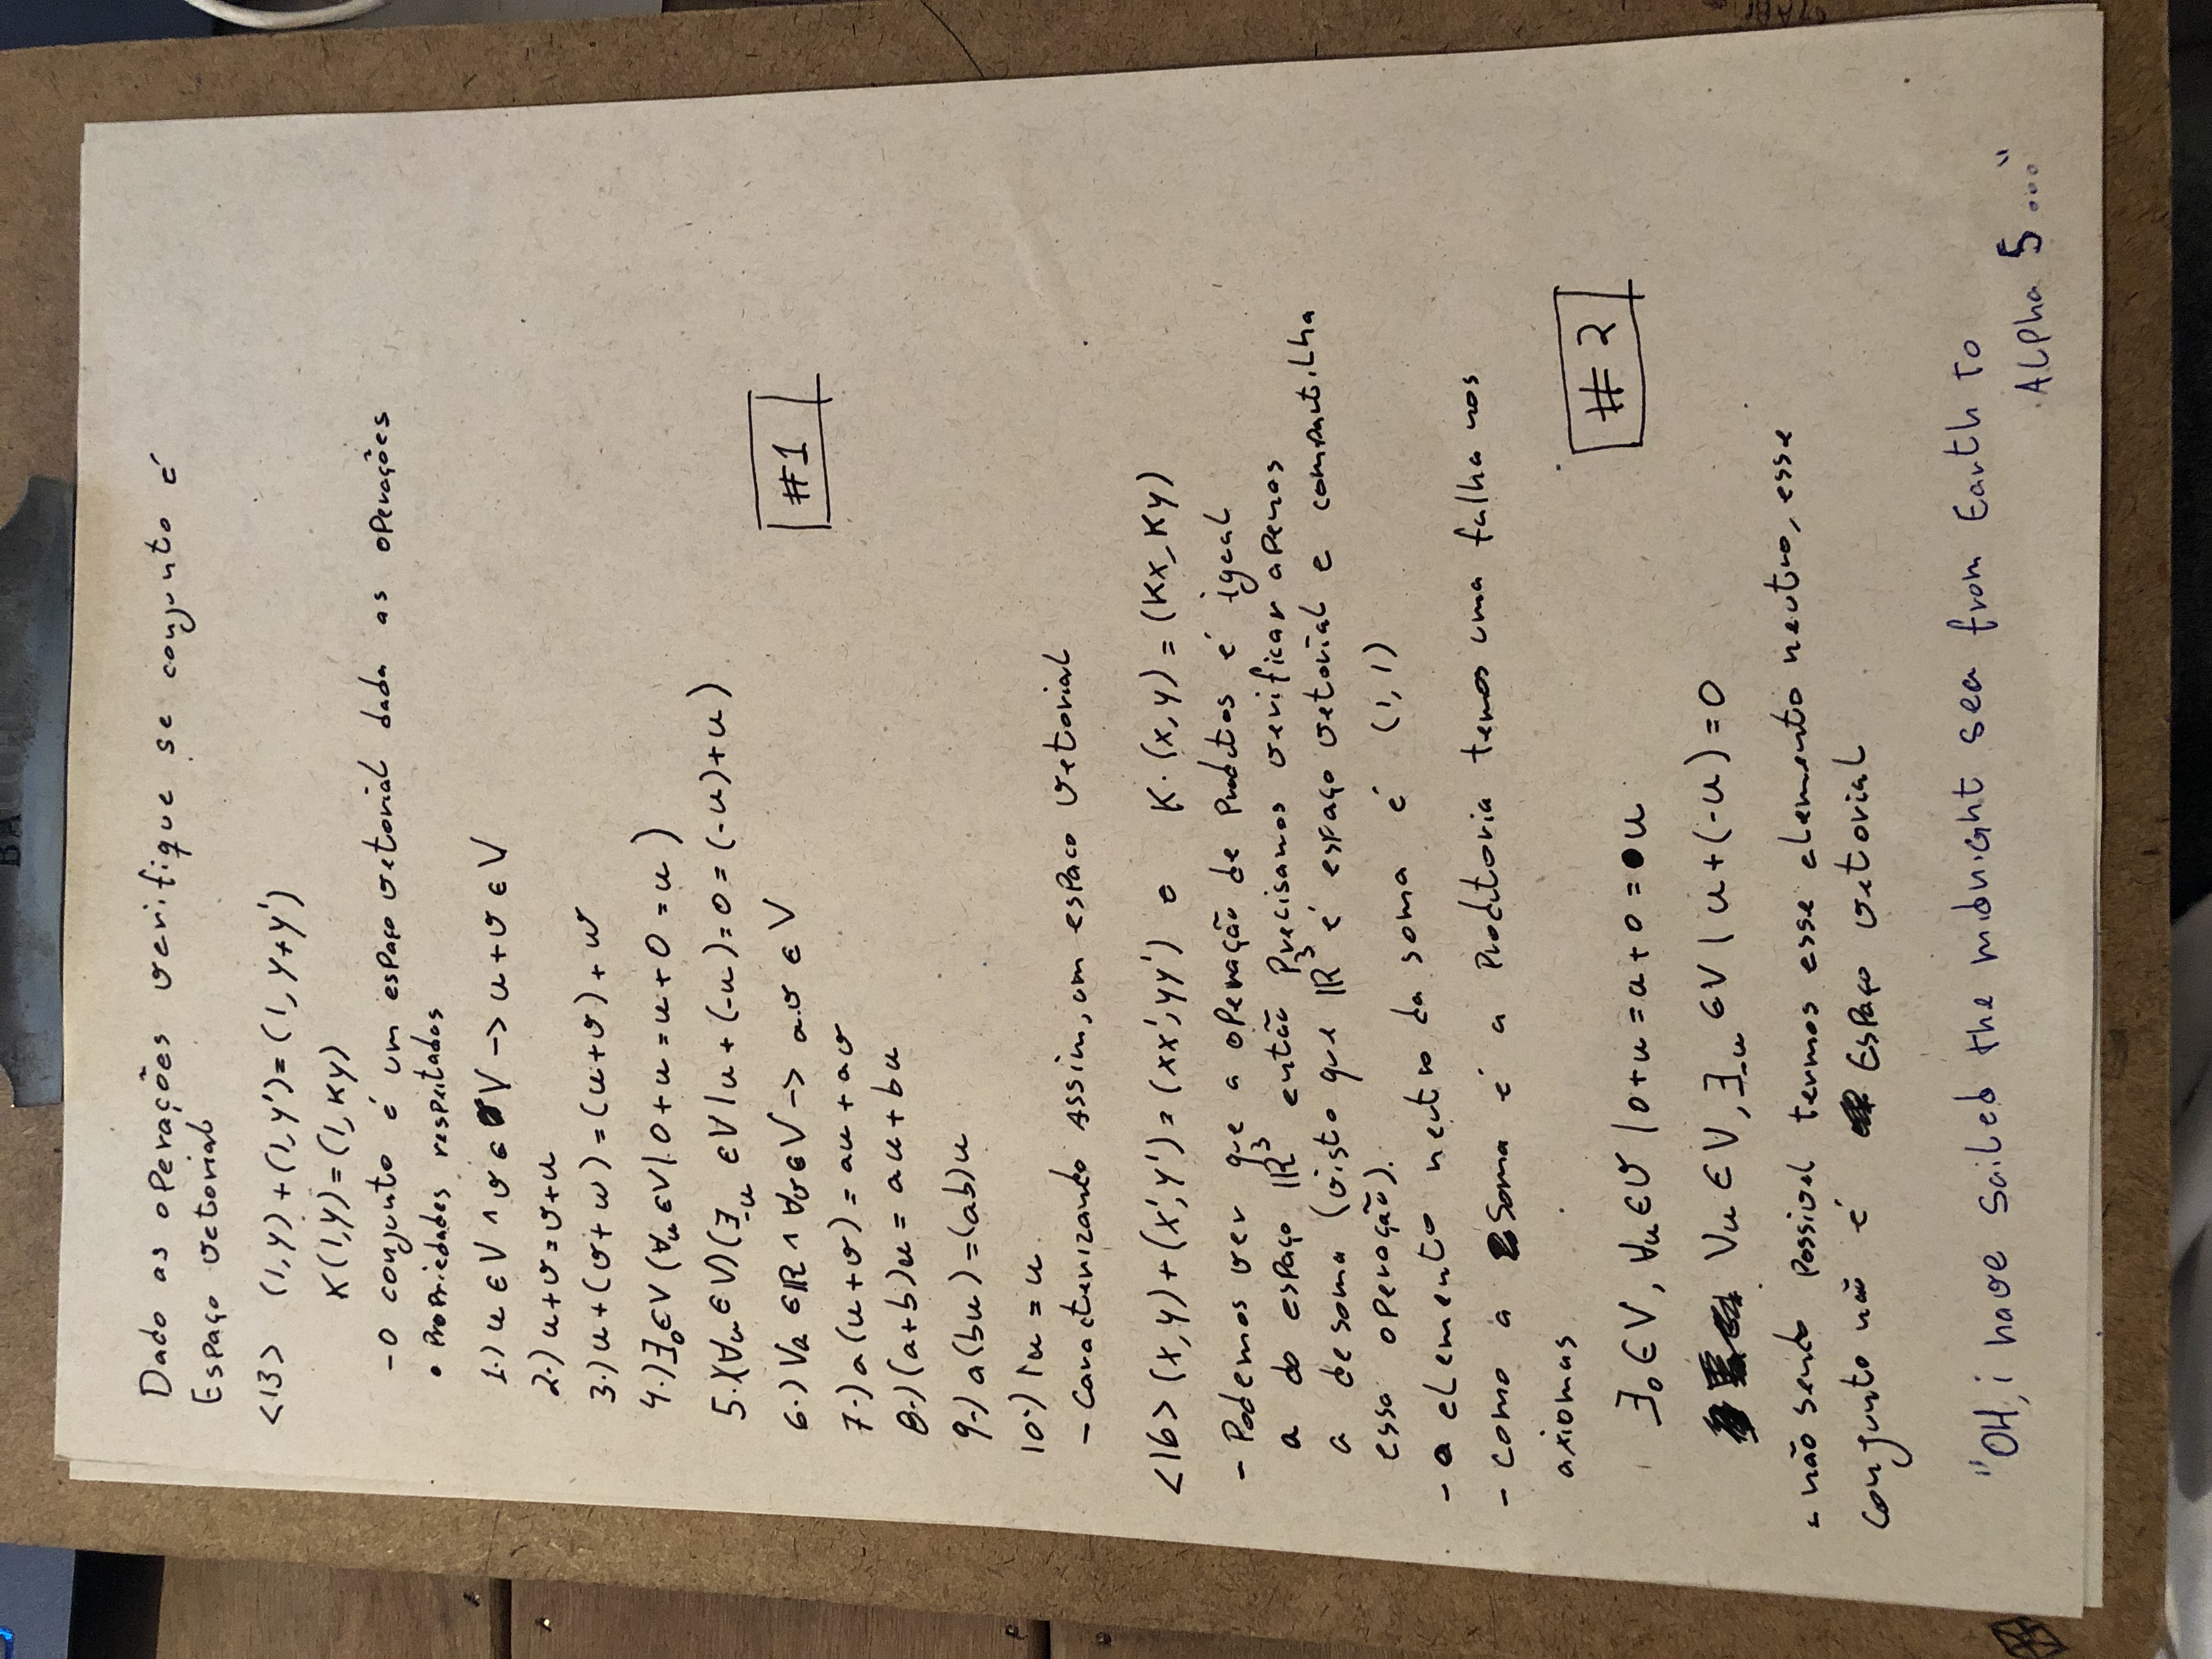 BA
Dado as operações verifique se conjunto é
Espaço vetorial
<13> (1,y)+(1,y')=(1,y+y')
K(1,y)=(1,Ky)
-O conjunto é um espaço vetorial dada as operações
• Propriedades respeitadas
1.) u ∈ V ^ v ∈ V -> u+v ∈ V
2.) u+v=v+u
3.) u+(v+w)=(u+v)+w
4.) ∃₀∈V (∀u ∈V|0+u=u+0=u)
5.)(∀u ∈ V)(∃-u ∈V|u+(-u)=0=(-u)+u)
6.) ∀a ∈ℝ ^ ∀v∈V -> a.v ∈ V
#1
7.) a(u+v)=au+av
8.) (a+b)u=au+bu
9.) a(bu)=(ab)u
10.) 1u=u
- Caracterizando Assim, um espaco vetorial
<16> (x,y)+(x',y')=(xx',yy') e K.(x,y)=(Kx,Ky)
- Podemos ver que a operação de é igual
a do espaço ℝ³ então Precisamos verificar apenas
a de soma (visto que ℝ³ é espaço vetorial e compartilha
essa operação).
- o elemento neutro da soma é (1,1)
- como a soma é a Proditoria temos uma falha nos
axiomas
∃₀∈V, ∀u∈V |0+u=u+0=u
#2
∀u ∈ V, ∃-u ∈V | u+(-u)=0
- não sendo possivel termos esse elemento neutro, esse
conjunto não é Espaço vetorial
"OH, i have Sailed the midnight sea from Earth to
Alpha 5..."